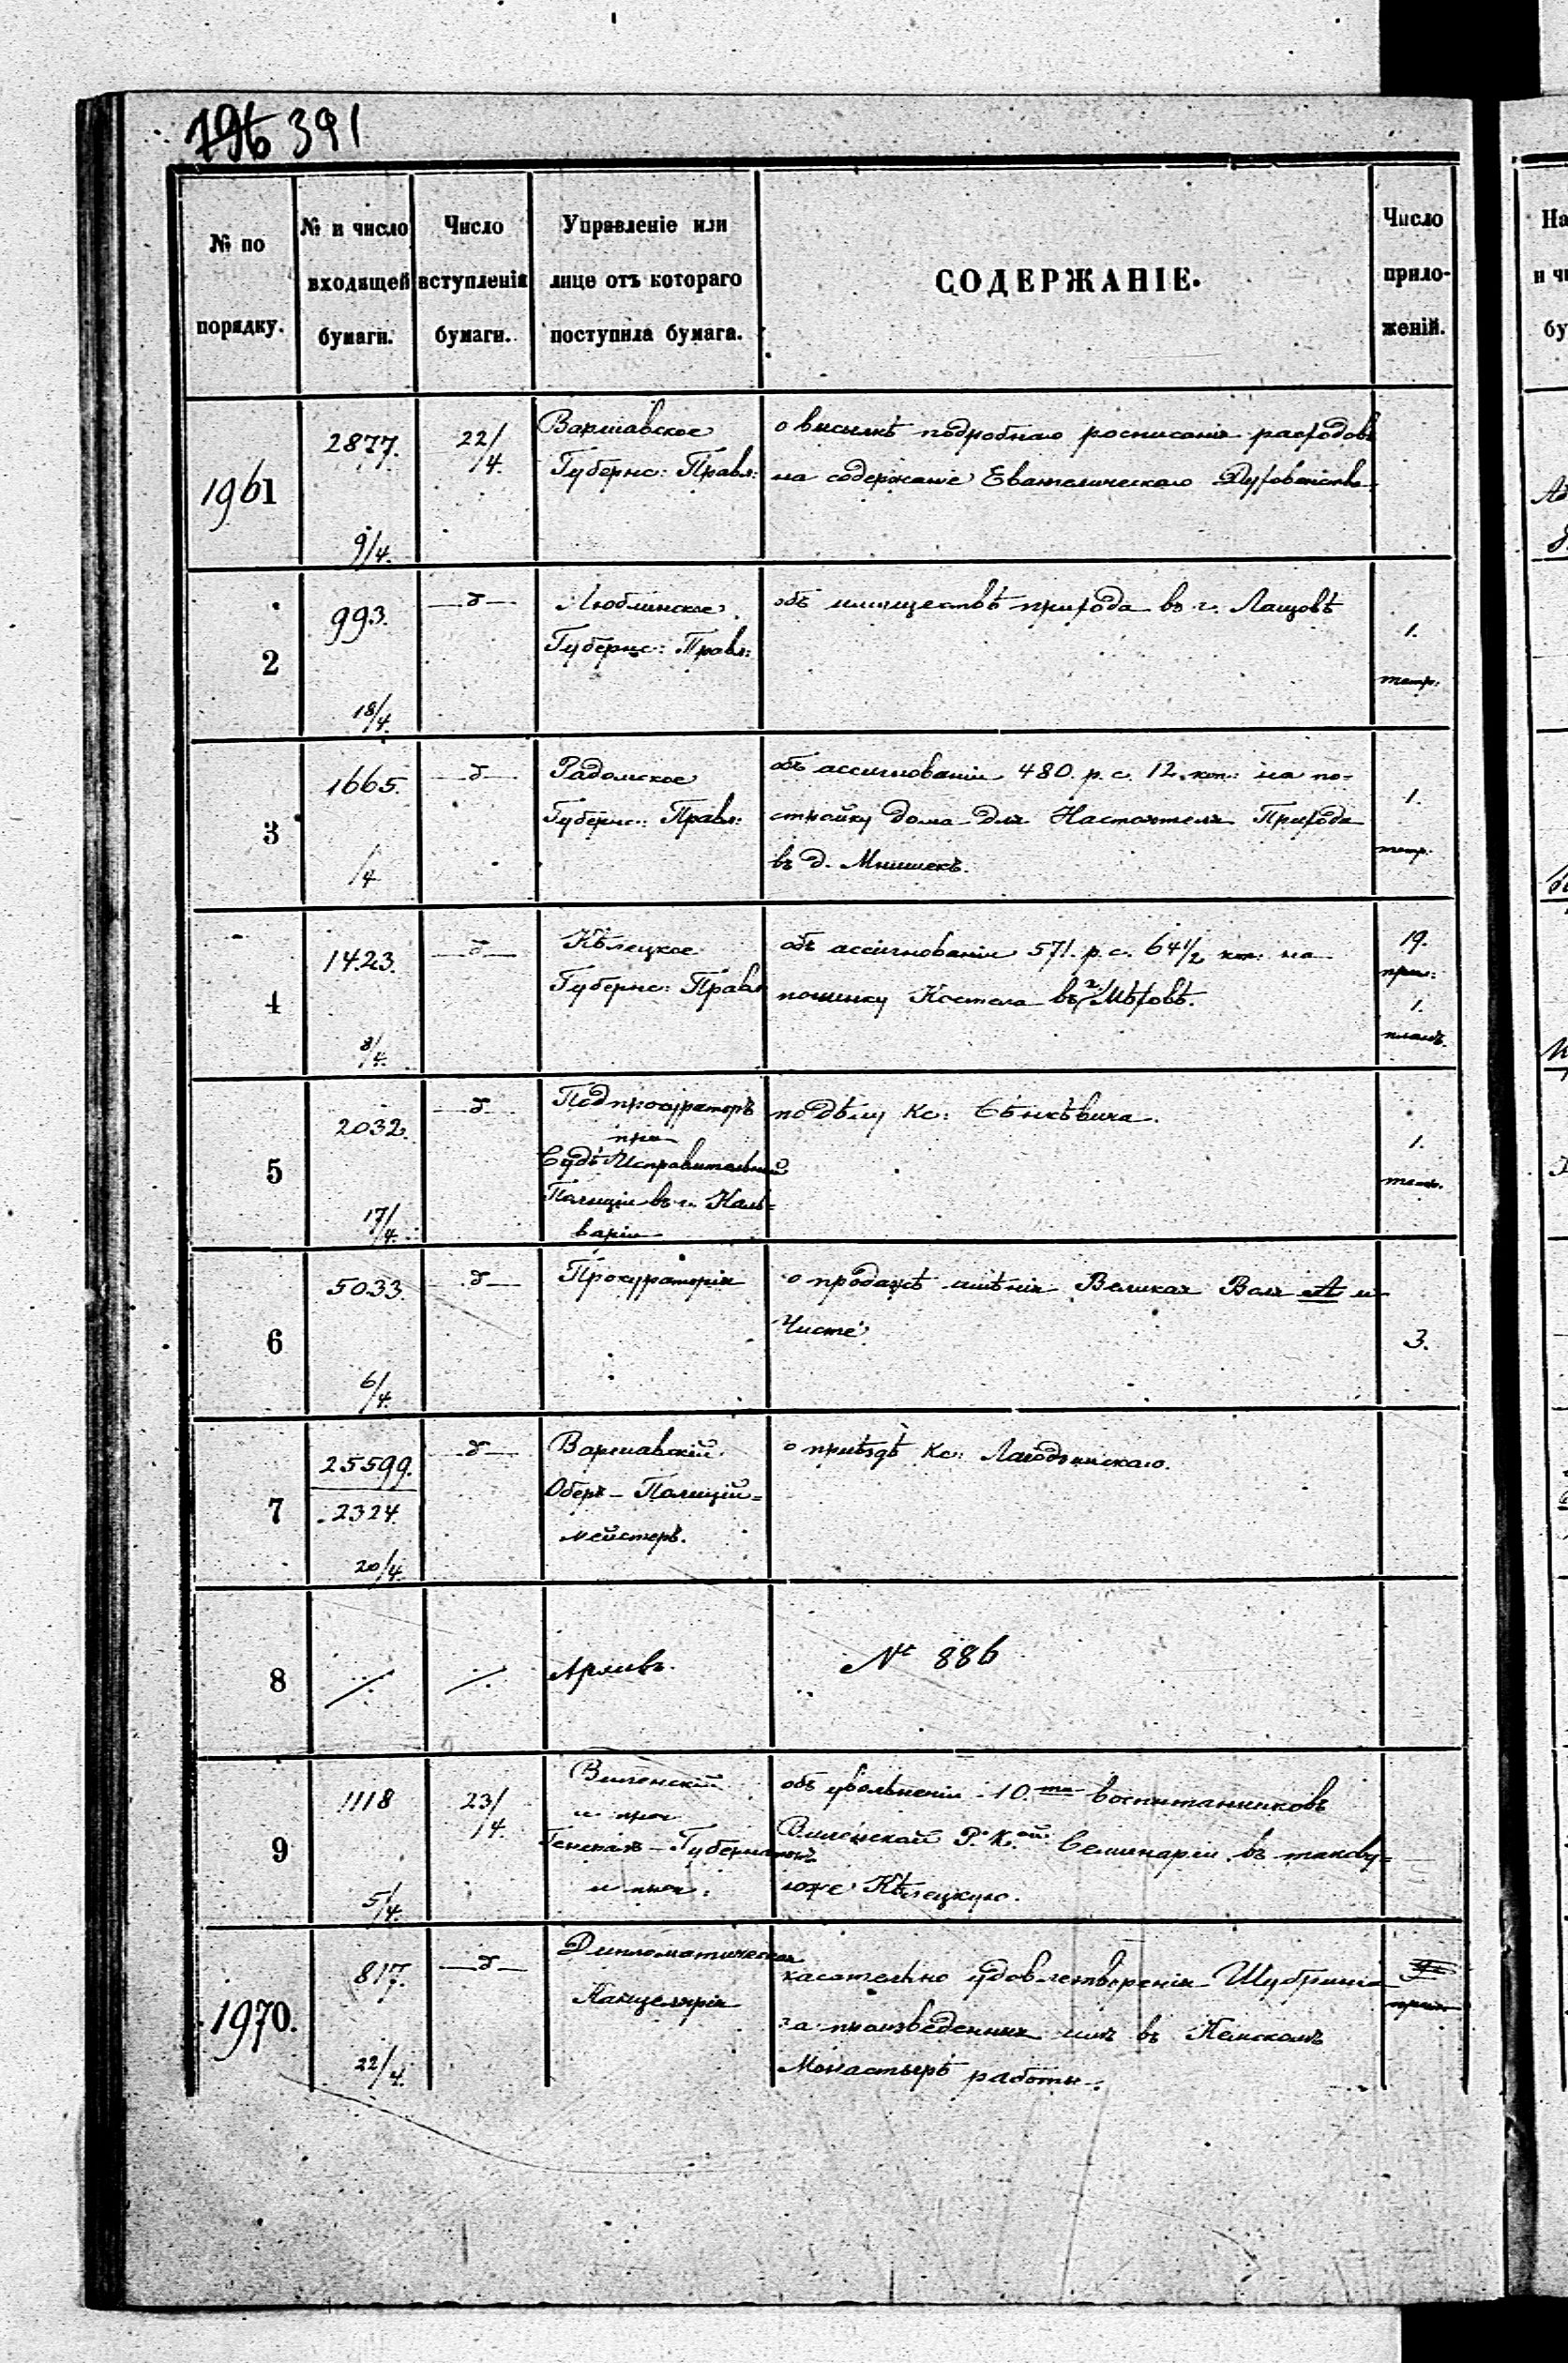 796 391
№ по порядку.
№ и число входящей бумаги.
Число вступленія бумаги.
Управленіе или лице отъ котораго поступила бумага.
СОДЕРЖАНІЕ.
Число приложеній.
1961
2877.
9/4.
22/4.
Варшавское
Губернс: Правл:
о высылкѣ подробнаго росписанія расходовъ
на содержаніе Евангелическаго Духовенства.
2
993.
18/4.
—д—
Люблинское
Губернс: Правл:
объ имуществѣ прихода въ г. Лащовѣ
1.
тетр.
3
1665.
/4
—д—
Радомское
Губернс: Правл:
объ ассигнованіи 480. р. с. 12. коп: на по-
стройку дома для Настоятеля Прихода
въ д. Мнишекъ.
1.
тетр.
4
1423.
8/4.
—д—
Кѣлецкое
Губернс: Правл
объ ассигнованіи 571. р. с. 64 1/2 коп: на
починку Костела въ г. Мѣховѣ.
19.
прил:
1.
планъ.
5
2032.
17/4.
—д—
Подпрокураторъ
при
Судѣ Исправительной
Полиціи въ г. Каль-
варіи
по дѣлу Кс: Сѣнкѣвича.
1.
6
5033
6/4.
—д—
Прокураторія
о продажѣ имѣнія Великая Воля А и
Чисте
3.
7
25599.
2324.
20/4.
—д—
Варшавскій
Оберъ-Полицій=
мейстеръ.
о пріѣздѣ Кс: Лагодзинскаго.
8
Архивъ.
№ 886
9
1118
5/4.
23/4.
Виленскій
и проч
Генералъ-Губернаторъ
и проч:
объ увольненіи 10.ти воспитанниковъ
Виленской Р. К.ой Семинаріи въ такову=
юже Кѣлецкую.
1970.
817.
22/4.
—д—
Дипломатическая
Канцелярія
касательно удовлетворенія
за произведенныя имъ въ
Монастырѣ работы.